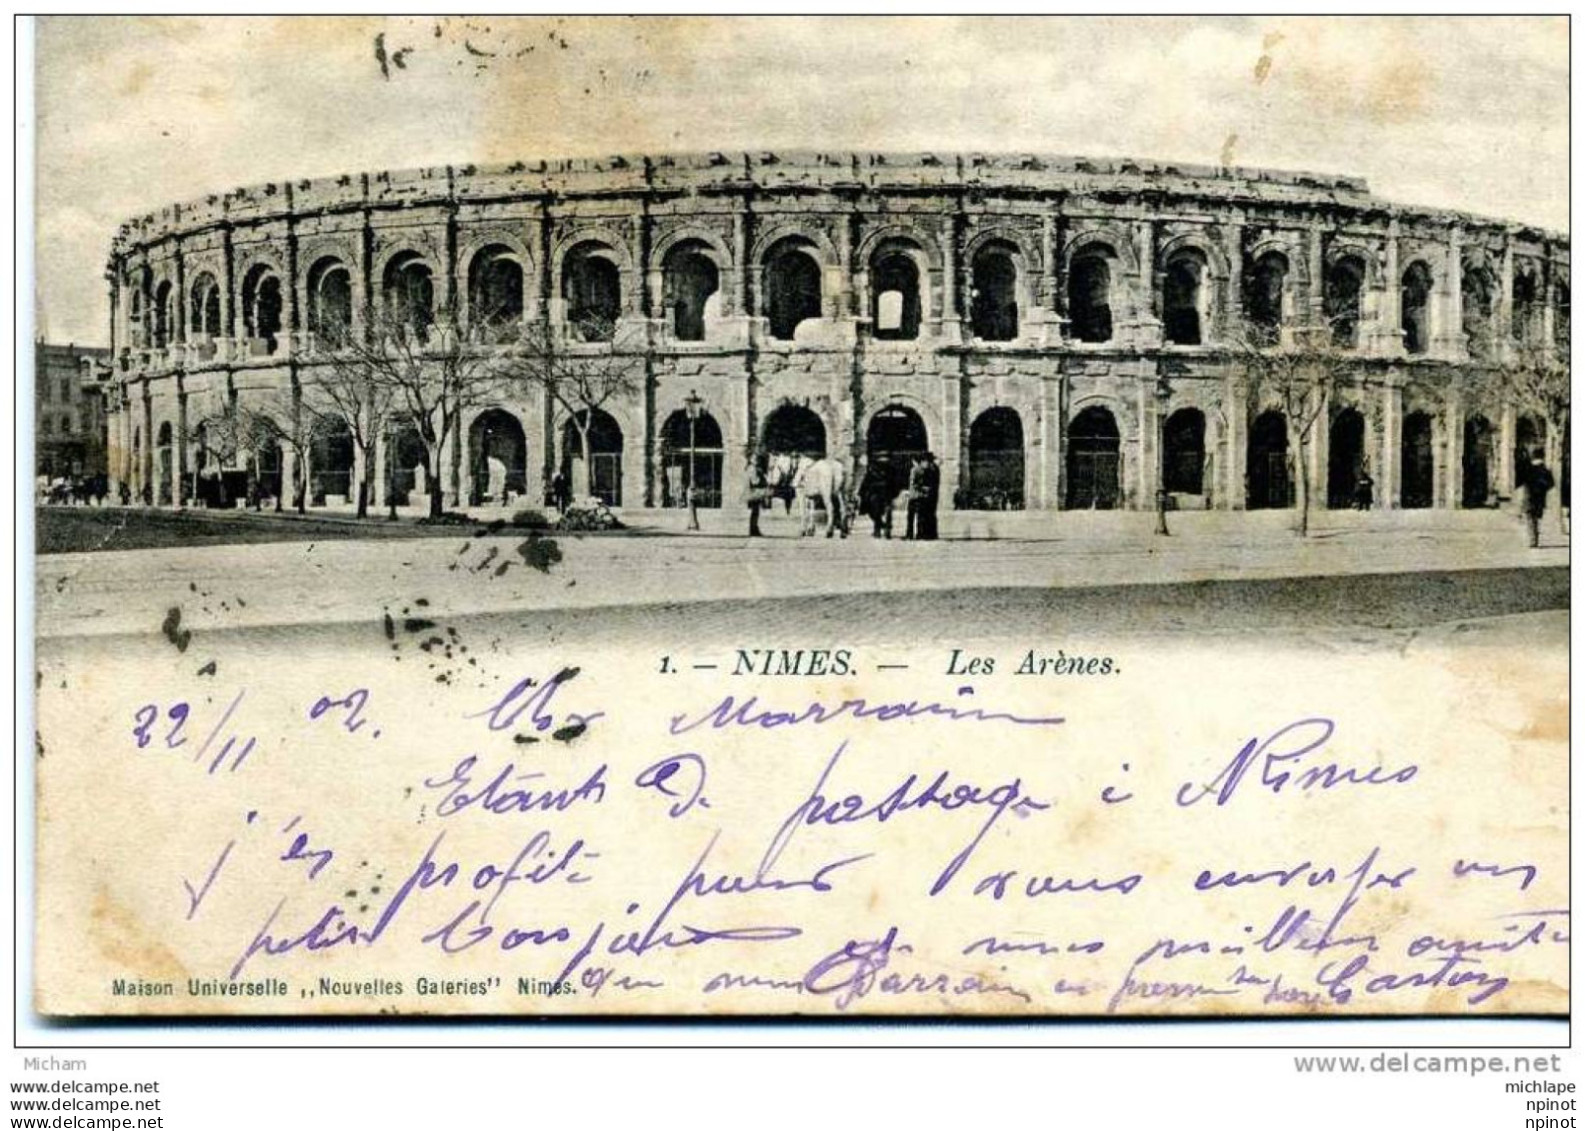 1. — NIMES. — Les Arènes.
22/11 02. Chr Marraine
Etant de passage à Nimes
j'en profite pour vous envoyer un
petit bonjour et mes meilleures amitiés
Gaston
Maison Universelle ,,Nouvelles Galeries'' Nimes.
Micham
www.delcampe.net
www.delcampe.net
www.delcampe.net
www.delcampe.net
michlape
npinot
npinot